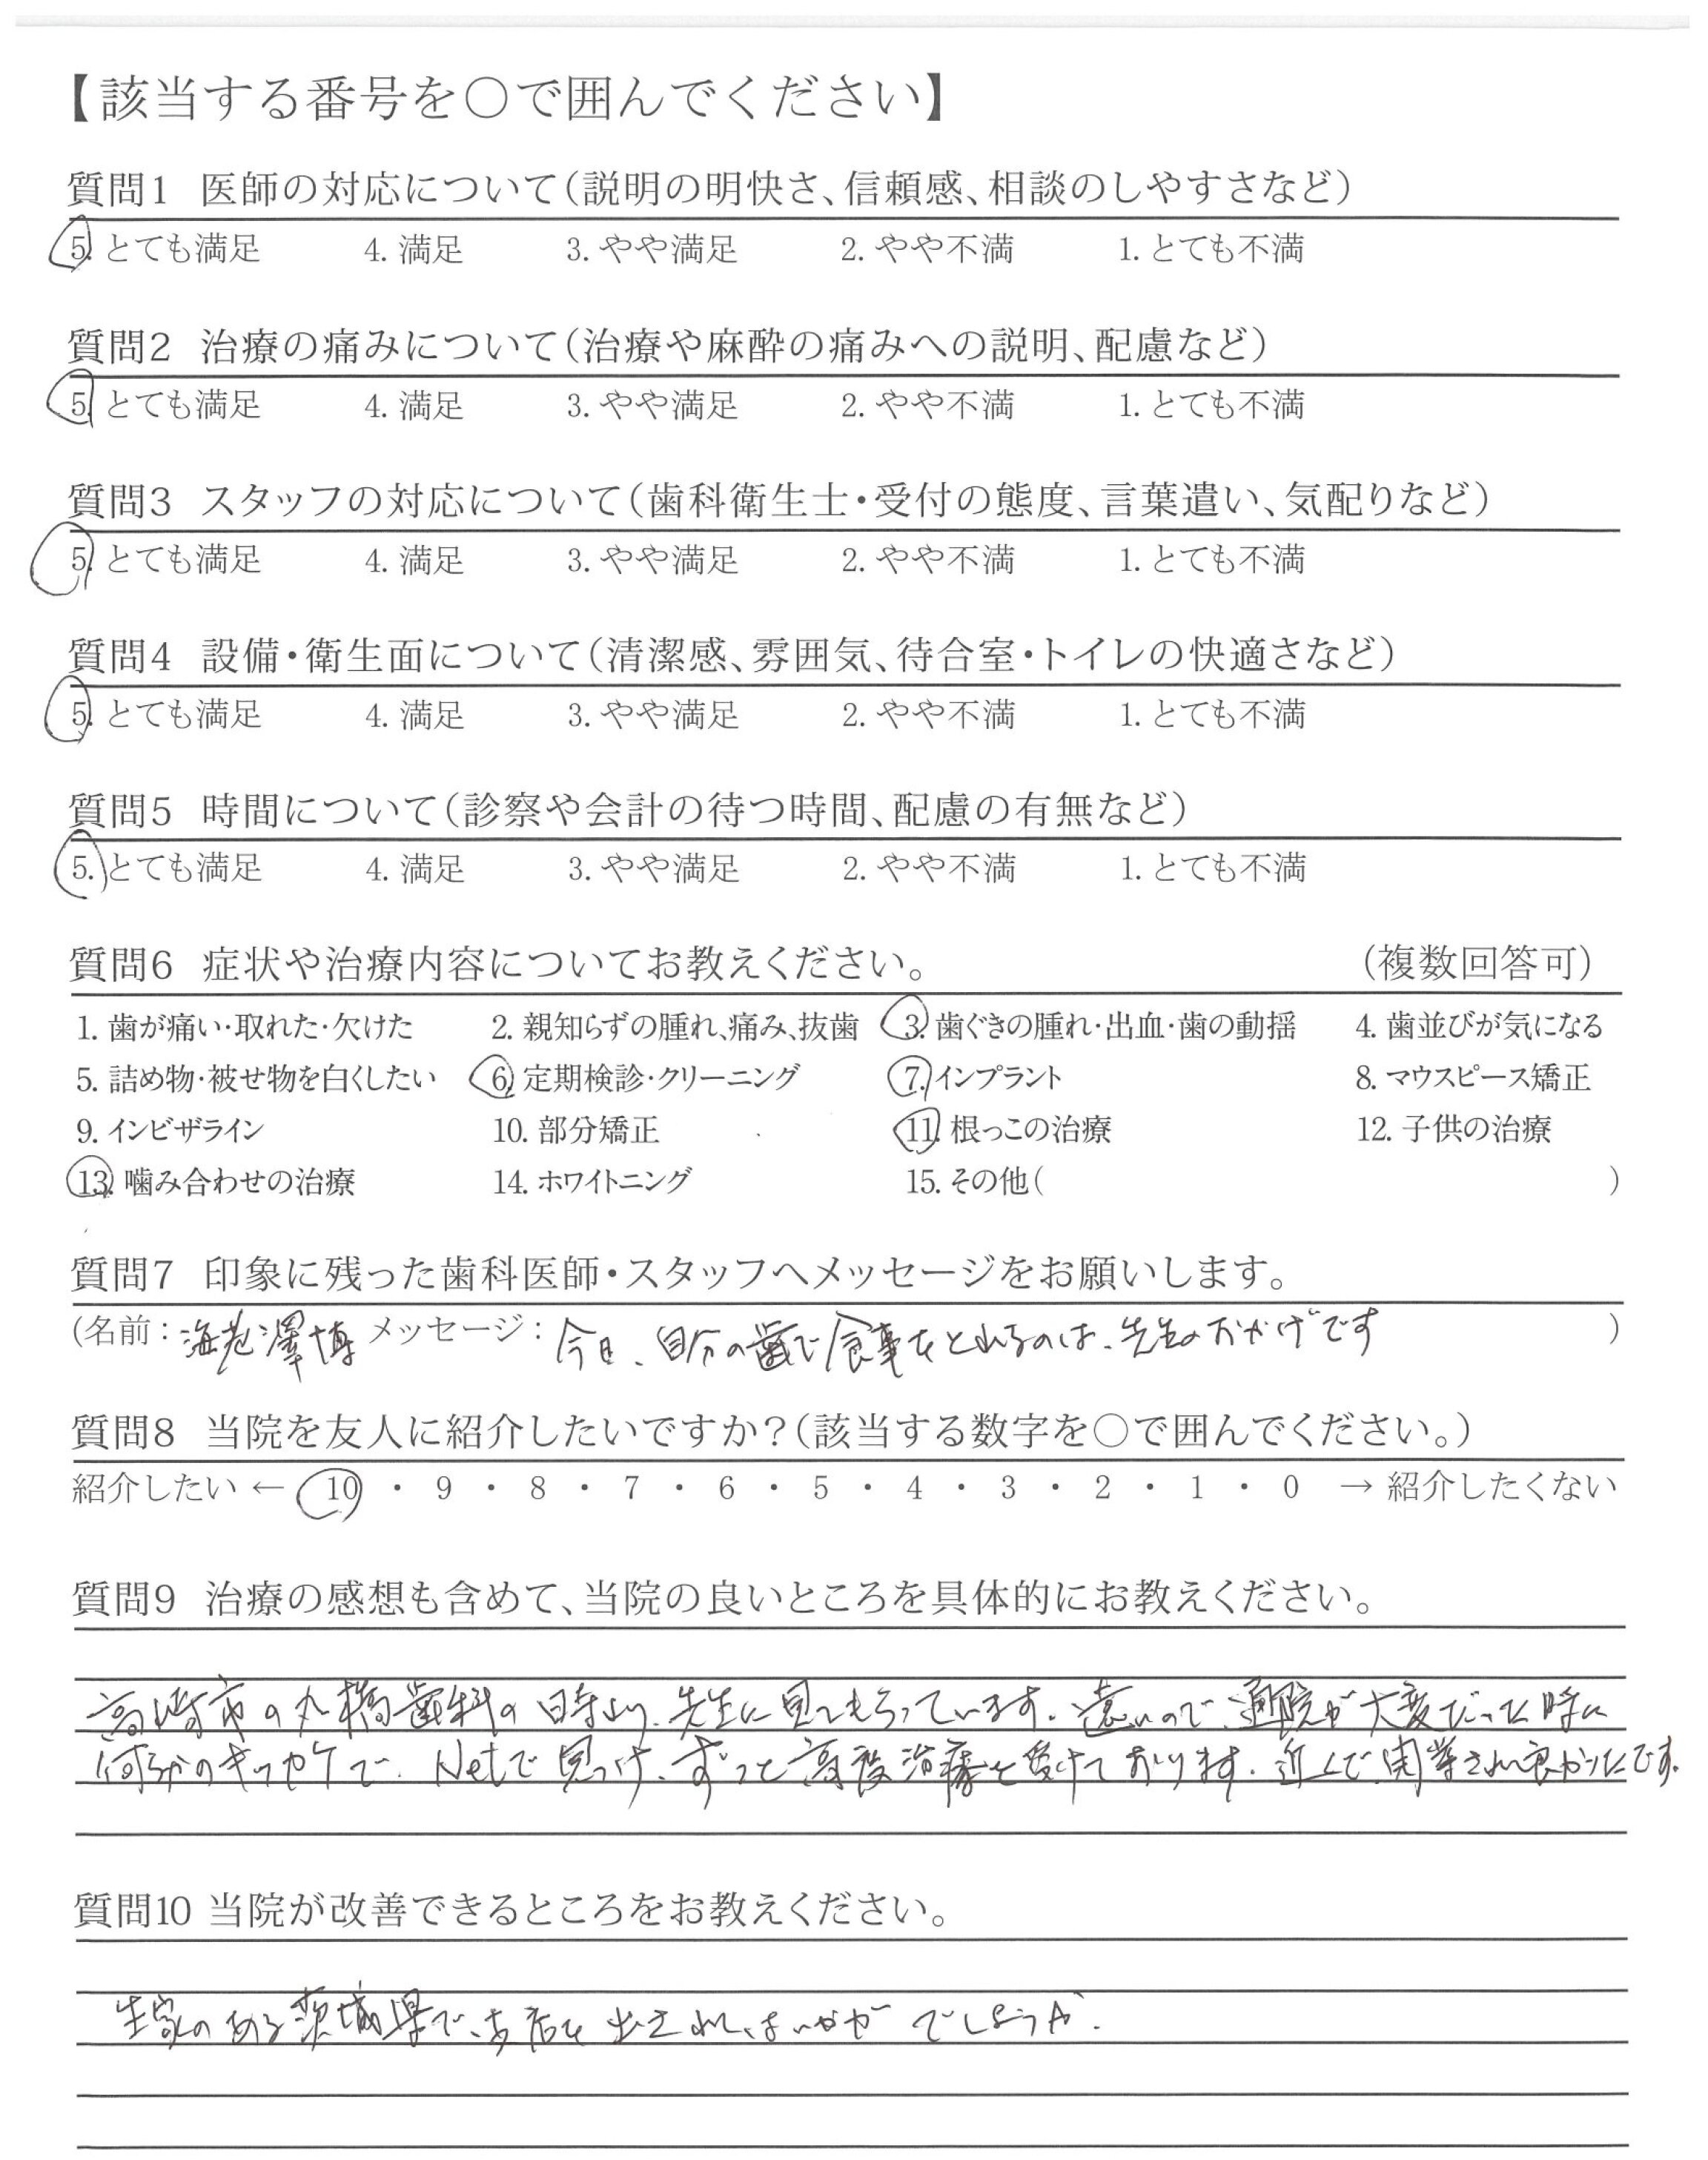 【該当する番号を○で囲んでください】
質問1 医師の対応について(説明の明快さ、信頼感、相談のしやすさなど)
5. とても満足 4. 満足 3. やや満足 2. やや不満 1. とても不満
質問2 治療の痛みについて(治療や麻酔の痛みへの説明、配慮など)
5. とても満足 4. 満足 3. やや満足 2. やや不満 1. とても不満
質問3 スタッフの対応について(歯科衛生士・受付の態度、言葉遣い、気配りなど)
5. とても満足 4. 満足 3. やや満足 2. やや不満 1. とても不満
質問4 設備・衛生面について(清潔感、雰囲気、待合室・トイレの快適さなど)
5. とても満足 4. 満足 3. やや満足 2. やや不満 1. とても不満
質問5 時間について(診察や会計の待つ時間、配慮の有無など)
5. とても満足 4. 満足 3. やや満足 2. やや不満 1. とても不満
質問6 症状や治療内容についてお教えください。 (複数回答可)
1. 歯が痛い・取れた・欠けた 2. 親知らずの腫れ、痛み、抜歯 3. 歯ぐきの腫れ・出血・歯の動揺 4. 歯並びが気になる
5. 詰め物・被せ物を白くしたい 6. 定期検診・クリーニング 7. インプラント 8. マウスピース矯正
9. インビザライン 10. 部分矯正 11. 根っこの治療 12. 子供の治療
13. 噛み合わせの治療 14. ホワイトニング 15. その他( )
質問7 印象に残った歯科医師・スタッフへメッセージをお願いします。
(名前: 海老澤博 メッセージ: 今日、自分の歯で食事をとれるのは、先生のおかげです )
質問8 当院を友人に紹介したいですか?(該当する数字を○で囲んでください。)
紹介したい ← 10 ・ 9 ・ 8 ・ 7 ・ 6 ・ 5 ・ 4 ・ 3 ・ 2 ・ 1 ・ 0 → 紹介したくない
質問9 治療の感想も含めて、当院の良いところを具体的にお教えください。
高崎市の丸橋歯科の時より、先生に見てもらっています。遠いので、通院が大変だった時に
何かのキッカケで、Netで見つけ、ずっと高度治療を受けております。近くで、開業され良かったです。
質問10 当院が改善できるところをお教えください。
生家のある茨城県で、お店を出されては、いかがでしょうか。